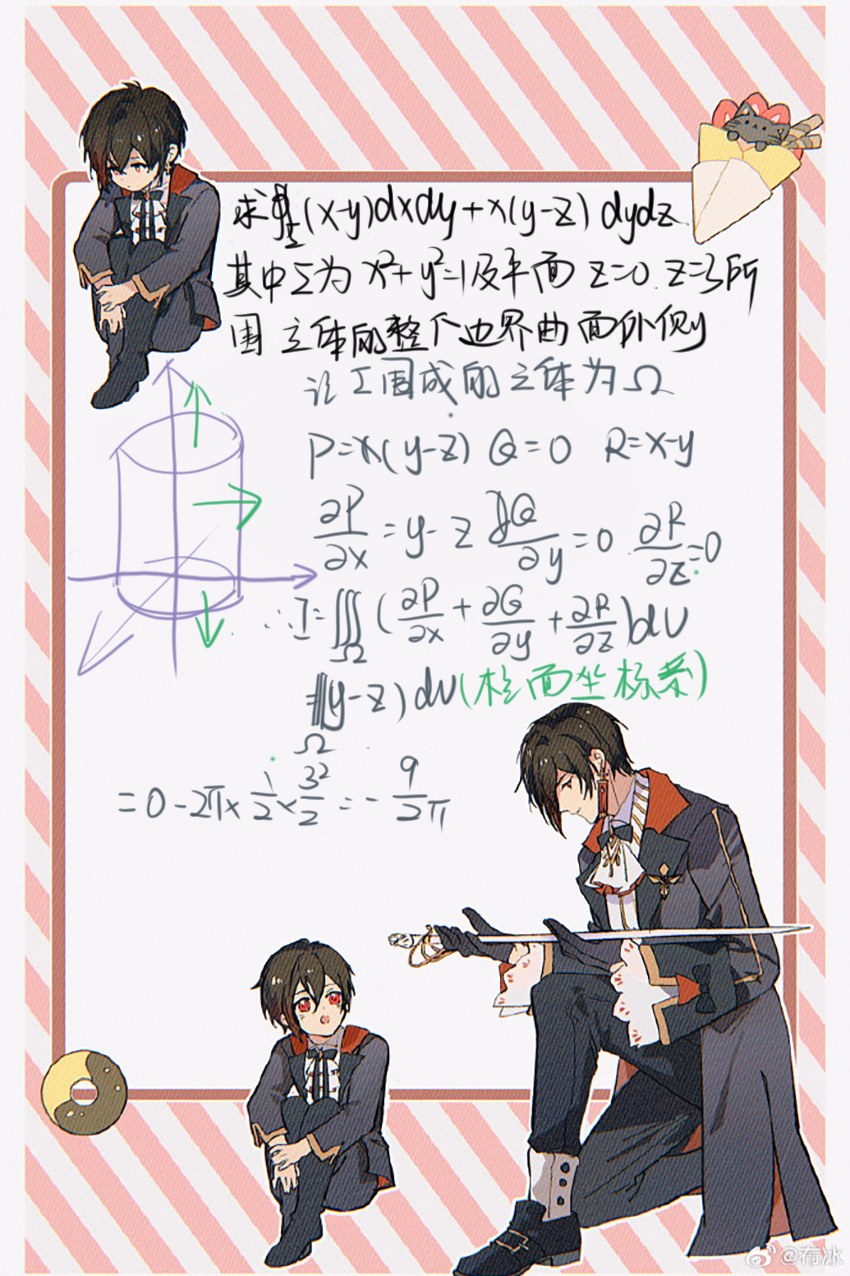 求∯_Σ(x-y)dxdy+x(y-z)dydz
其中Σ为x²+y²=1及平面z=0.z=3所
围立体的整个边界曲面外侧
记Σ围成的立体为Ω
P=x(y-z) Q=0 R=x-y
∂P/∂x=y-z ∂Q/∂y=0 ∂R/∂z=0
∴I=∭_Ω(∂P/∂x+∂Q/∂y+∂R/∂z)dv
=∭_Ω(y-z)dv(柱面坐标系)
=0-2π×1/2×3²/2=-9/2π
@布冰